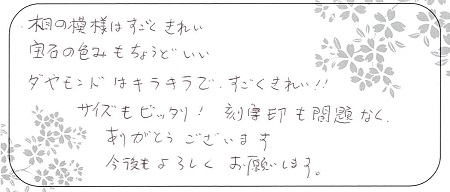 相の模様はすごときれい
宝石の色みもちょうどいい
ダヤモンドはキラキラで、すごくきれい!!
サイズもピッタリ! 刻厚印も問題なく、
ありがとうございます
今後もよろしくお願いします。